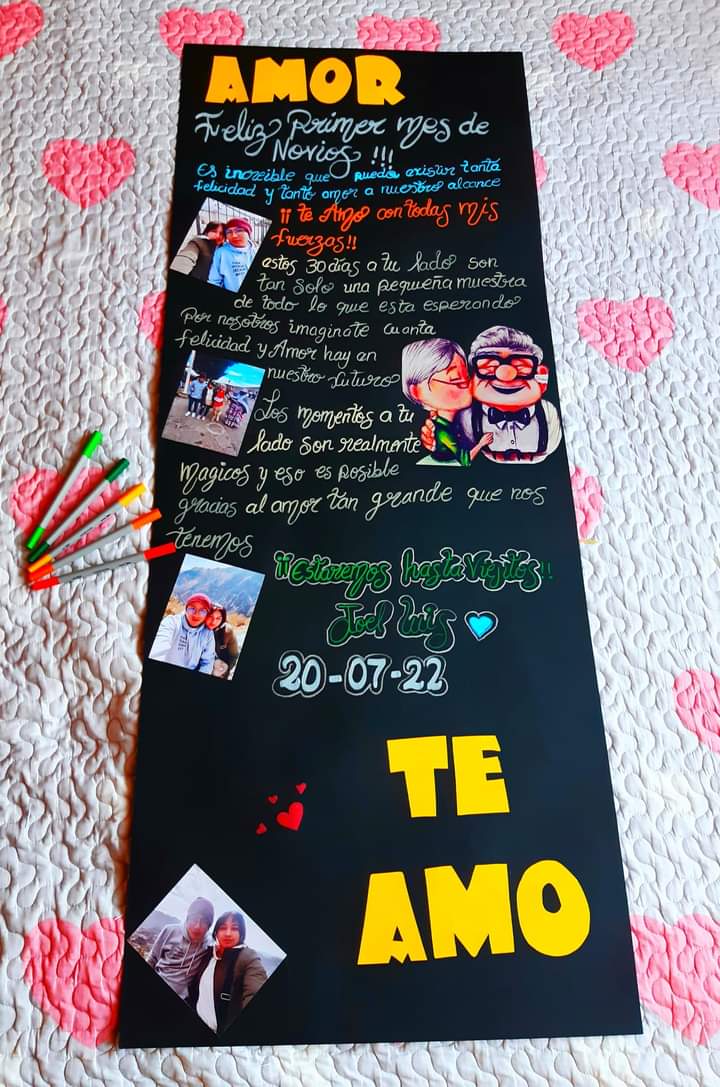 AMOR
Feliz Primer mes de
Novios !!!
Es increible que pueda existir tanta
felicidad y tanto amor a nuestro alcance
¡¡ te Amo con todas mis
fuerzas!!
estos 30 días a tu lado son
tan solo una pequeña muestra
de todo lo que esta esperando
por nosotros imaginate cuanta
felicidad y Amor hay en
nuestro futuro
Los momentos a tu
lado son realmente
magicos y eso es posible
gracias al amor tan grande que nos
tenemos
¡¡Estaremos hasta Viejitos!!
Joel Luis
20-07-22
TE
AMO